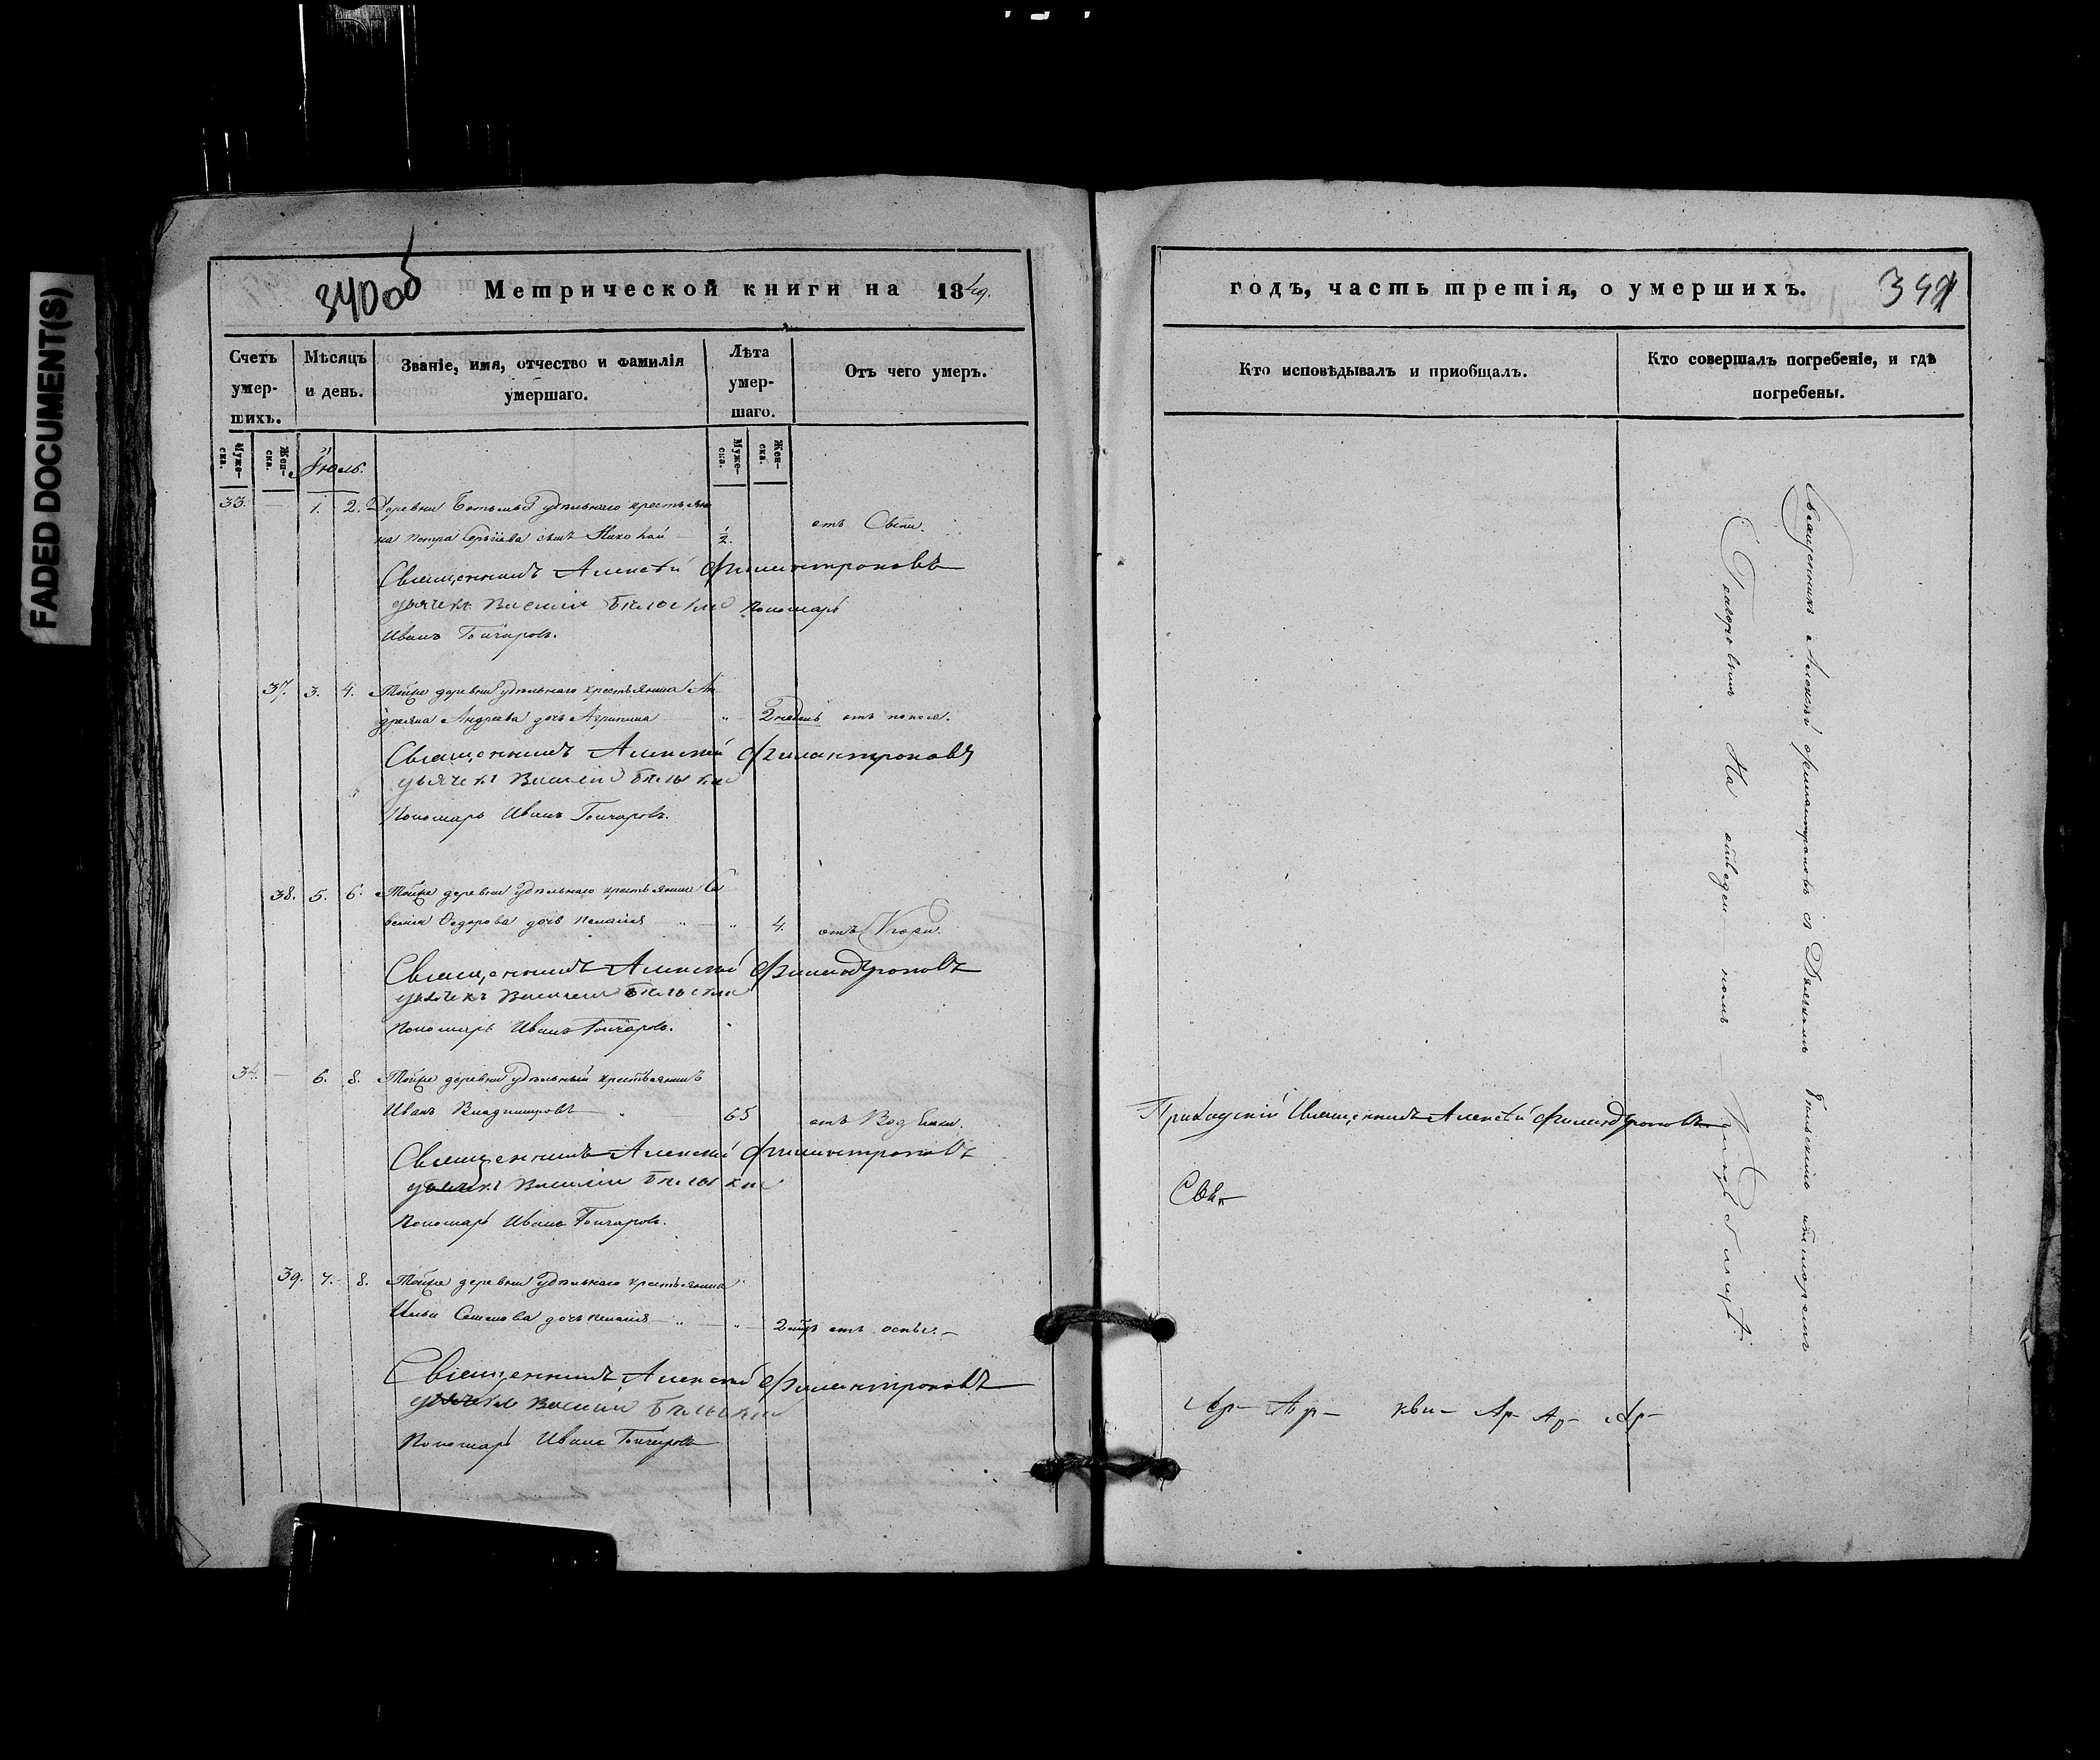 FADED DOCUMENT(S)
340об
Метрической книги на 1849.
Счетъ умер-шихъ.
Мѣсяцъ и день.
Званіе, имя, отчество и фамилія умершаго.
Лѣта умер-шаго.
Отъ чего умеръ.
Муже-ска.
Жен-ска.
Іюль.
Муже-ска.
Жен-ска.
33. — 1. 2. Деревни удѣльнаго крестьяни
на Петра сынъ Николай 1/2. отъ
Священникъ Алексѣй Филантроповъ
дьячекъ Василій Бѣльскій Пономарь
Иванъ Гончаровъ.
37. 3. 4. Тойже деревни удѣльнаго крестьянина Ан
дреяна Андреева дочь Агрипина 2 недѣль отъ поноса.
Священникъ Алексѣй Филантроповъ
дьячекъ Василій Бѣльскій
Пономарь Иванъ Гончаровъ.
38. 5. 6. Тойже деревни удѣльнаго крестьянина Са
велия Федорова дочь Пелагия „ „ 4. отъ Кори.
Священникъ Алексѣй Филантроповъ
дьячекъ Василій Бѣльскій
Пономарь Иванъ Гончаровъ.
34. — 6. 8. Тойже деревни удѣльный крестьянинъ
Иванъ Владимировъ „ 65 отъ
Священникъ Алексѣй Филантроповъ
дьячекъ Василій Бѣльскій
Пономарь Иванъ Гончаровъ.
39. 7. 8. Тойже деревни удѣльнаго крестьянина
Ильи Семенова дочь Пелагия „ „ 2 отъ оспы.
Священникъ Алексѣй Филантроповъ
дьячекъ Василій Бѣльскій
Пономарь Иванъ Гончаровъ
годъ, часть третія, о умершихъ.
341
Кто исповѣдывалъ и приобщалъ.
Кто совершалъ погребеніе, и гдѣ погребены.
Приходскій Священникъ Алексѣй Филантроповъ
Священникъ Алексѣй Филантроповъ съ Дьячкомъ Бѣльскимъ и Пономаремъ
Гончаровымъ На отведен—номъ Кладбищѣ.